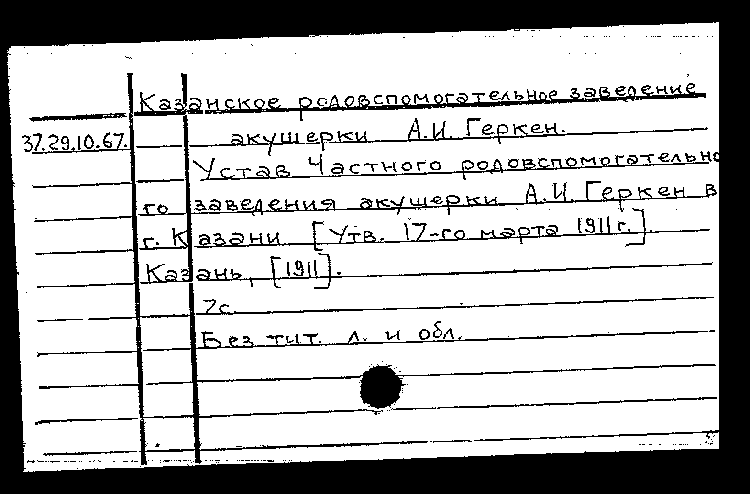 Казанское родовспомогательное заведение
37.29.10.67. акушерки А.И. Геркен.
Устав Частного родовспомогательно
го заведения акушерки А.И. Геркен в
г. Казани [Утв. 17-го марта 1911 г.].
Казань, [1911].
7с.
Без тит. л. и обл.